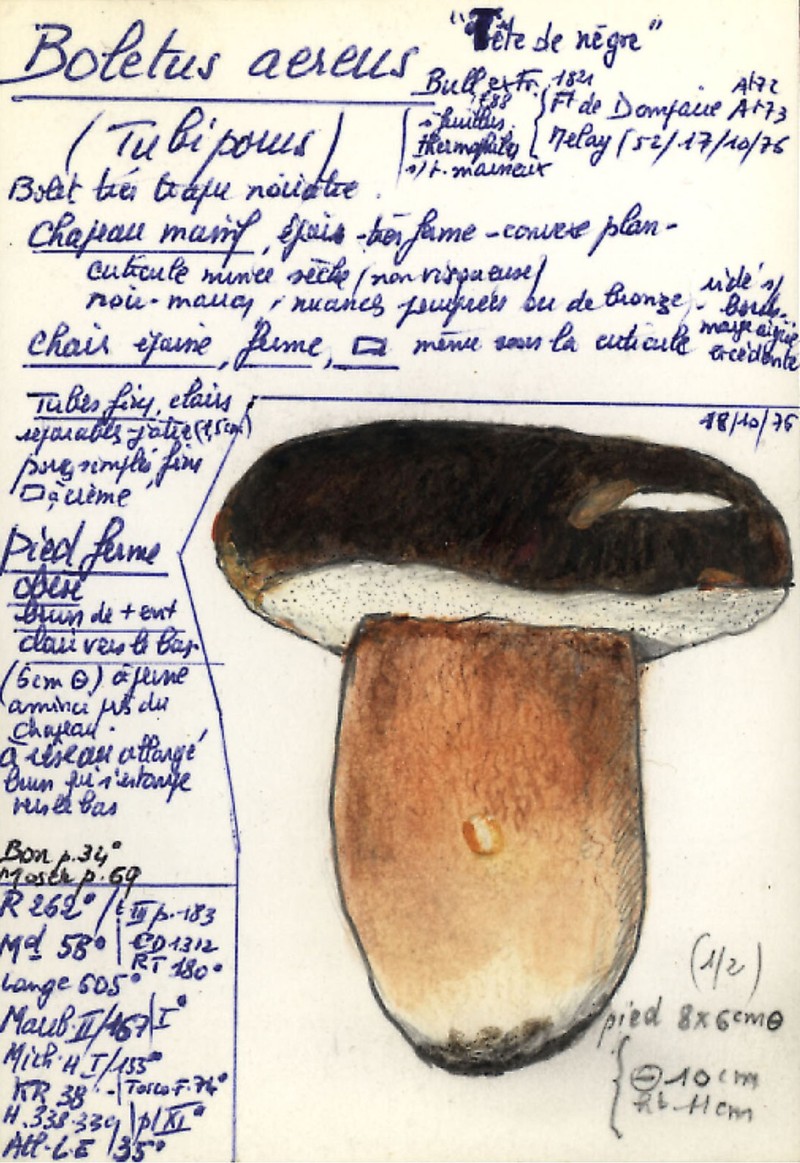 Boletus aereus
"Tête de nègre"
Bull ex Fr. 1821
(Tubiporus)
s/feuillus
thermophiles
s/t. marneux
Ft de Domfaire A472
A473
Melay (52/17/10/76
Bolet très trapu noirâtre.
Chapeau massif, épais - très ferme - convexe plan -
cuticule mince sèche (non visqueuse)
noir-marron, nuances pourpres ou de bronze - ridé s/
bords.
marge aigüe
excédente
Chair épaisse, ferme, même sous la cuticule
Tubes fins, clairs
séparables (1,5cm)
pores simples fins
à crème
18/10/76
Pied ferme
obèse
brun de + en +
clair vers le bas
(6cm Θ) à ferme
aminci près du
chapeau.
à réseau allongé
brun qui s'estompe
vers le bas
Bon p.34°
Mosch p.69
R 262° III p.183
Md 58° CD 1312
RT 180°
Lange 605°
Maub. II/467 I°
Mich. H I/153°
KR 38 - Tosco F. 74°
H. 338.339 pl XI°
Atl-L.E 35°
(1/2)
pied 8x6cmΘ
Θ 10cm
ht 11cm